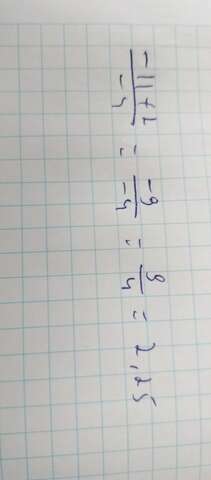 (-11+2)/(-4) = (-9)/(-4) = 9/4 = 2,25